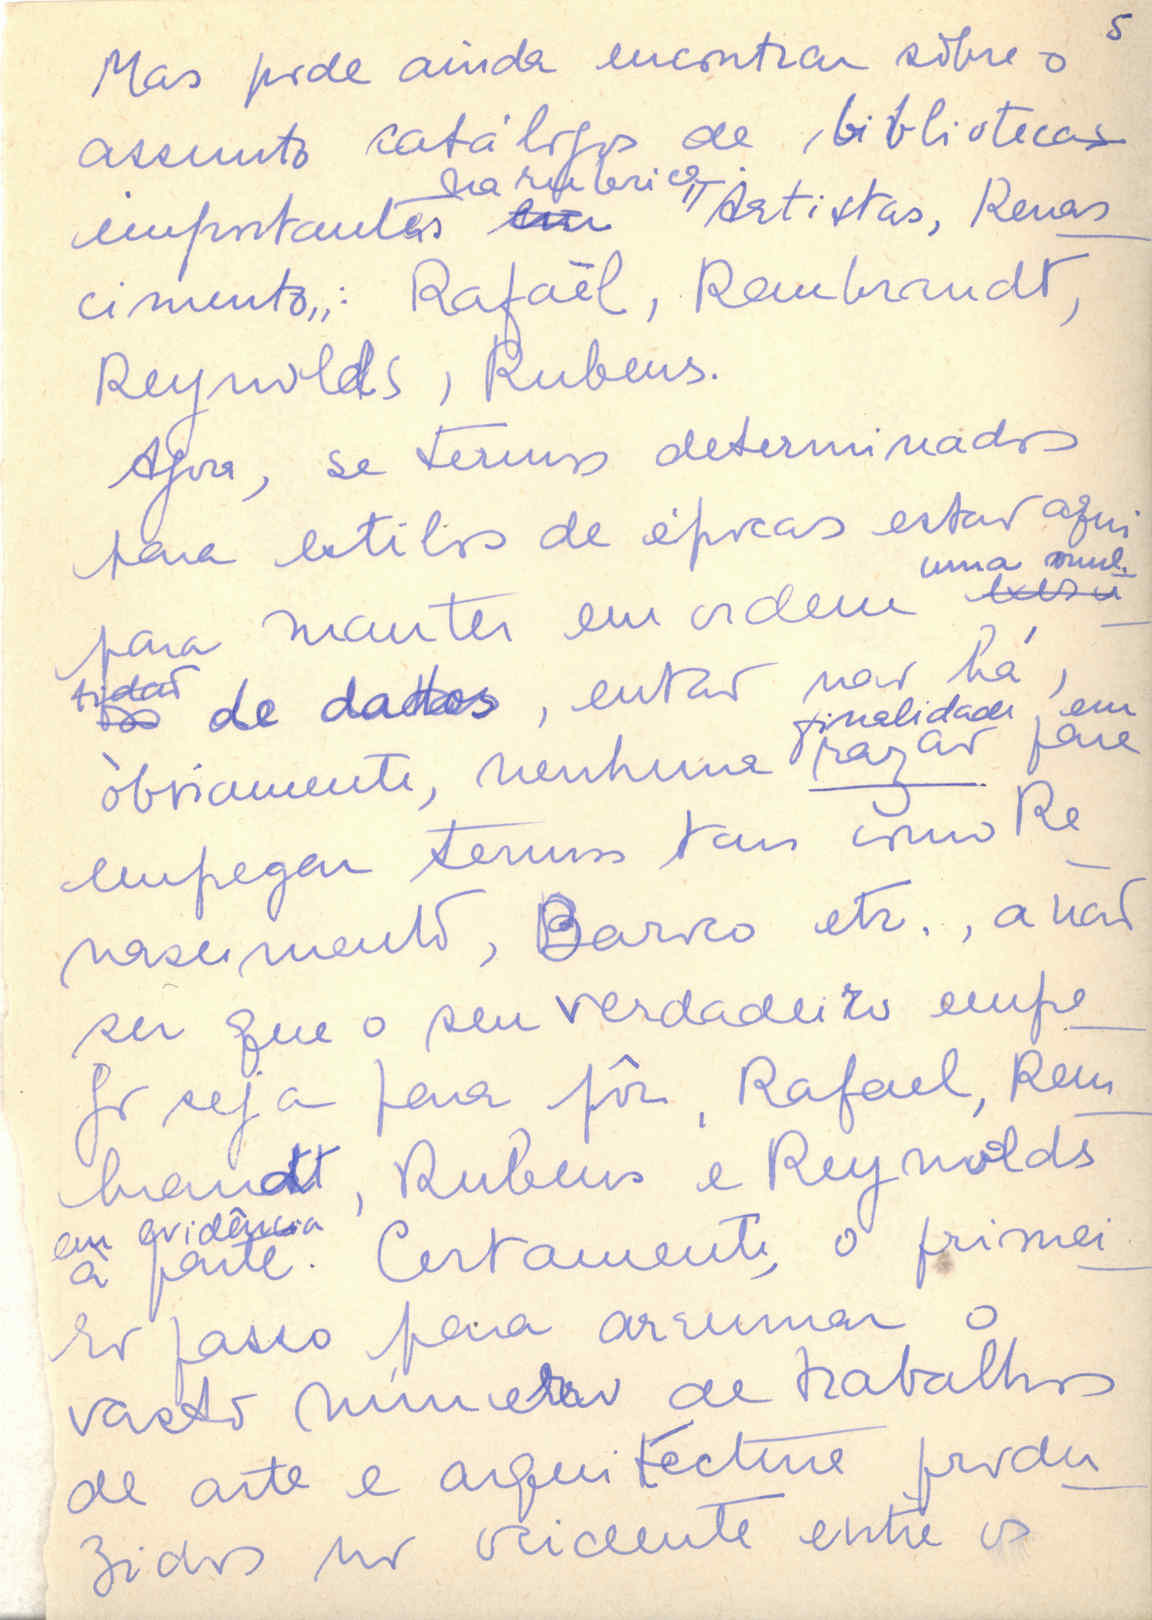 5
Mas pode ainda encontrar sôbre o
assunto catálogos de bibliotecas
na rubrica
importantes em "Artistas, Renas
cimento,,: Rafaël, Rembrandt,
Reynolds, Rubens.
Agora, se termos determinados
para estilos de épocas estão aqui
uma mul.
para manter em ordem
tidão
de dados, então não há,
finalidade, em
òbviamente, nenhuma razão para
empegar termos tais como Re
nascimento, Barroco etc., a não
ser que o seu verdadeiro empe
go seja para pôr, Rafael, Rem
brandt, Rubens e Reynolds
em evidência
à parte. Certamente, o primei
ro passo para arrumar o
vasto número de trabalhos
de arte e arquitéctura produ
zidos no ocidente entre os